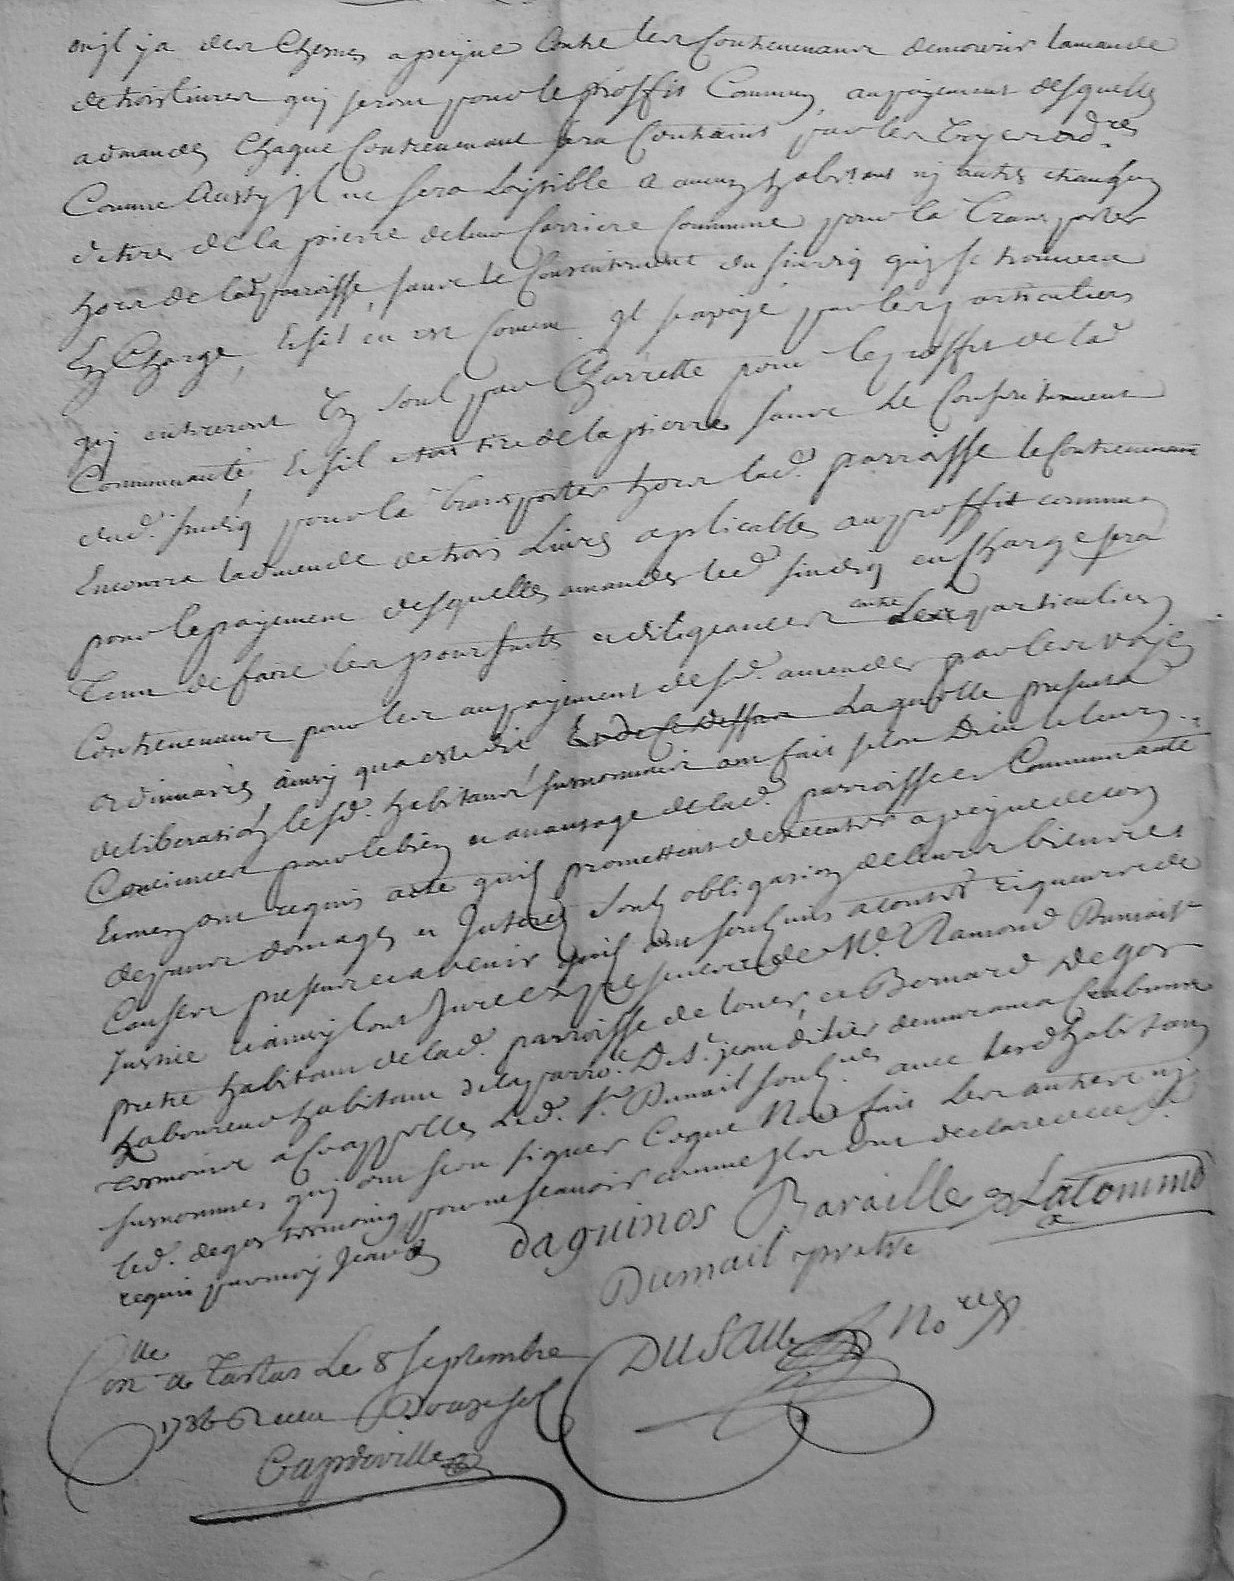 ou jl y a des chesnes a peyne contre les contrevenans demourir lamande
de trois livres quj seront pour le proffit Commun, au payement desquelles
admandes Chaque Contrevenant sera Contraint par les voyes ord.res
Comme Aussy jl ne sera Loysible a aucuns habitans nj autres etrangers
de tirer de la pierre de leur Carriere Commune pour la Transporter
hors de lad parroisse, sauf le Consentement du sindiq quj se trouvera
En Charge, Et sil en est Comme jl sera payé par les particuliers
quj entreront Un soul par Charrette pour le proffit de lad
Communauté, Et sil etoit tiré de la pierre sans le Consentement
dud. sindiq pour la transporter hors lad. parroisse le Contrevenant
Encourra ladmende de trois Livres aplicables au proffit commun
pour le payement desquelles amandes led. sindiq en Charge sera
Tenu de faire les poursuites et diligeances contre Les particuliers
Contrevenans pour les au payement desd. amendes par les voyes
ordinaires ainsy qua este dit Laquelle presente
deliberation lesd. habitans susnommés ont fait selon Dieu et leurs
Conciences pour le bien et avantage de lad. parroisse et Communauté
Et m'en ont requis acte quils promettent dexecuter a peyne de tous
depans domages et Interets sous obligation de leurs biens et
Causes presens et avenir quils ont soubmis a toutes rigueurs de
Justice et ainsy lont Juré En presence de M.e Ramond Dumail
pretre habitant de lad. parroisse de louer, et Bernard Degos
Laboureur habitant de la parro.e De S.t jean
Tesmoins a Ce appelles Led. S.r Dumail soub.nés avec lesd habitans
susnommes quj ont sceu signer Ceque Nont fait Les autres nj
led. degos tesmoing pour ne scavoir comme jls ont declaré de ce f.
requis par moy
daguinos Baraille Latomme
Dumail pretre
DUSAU No.re
Con.lle a Tartas Le 8 septembre
1736 Receu Douze sols
Capdeville